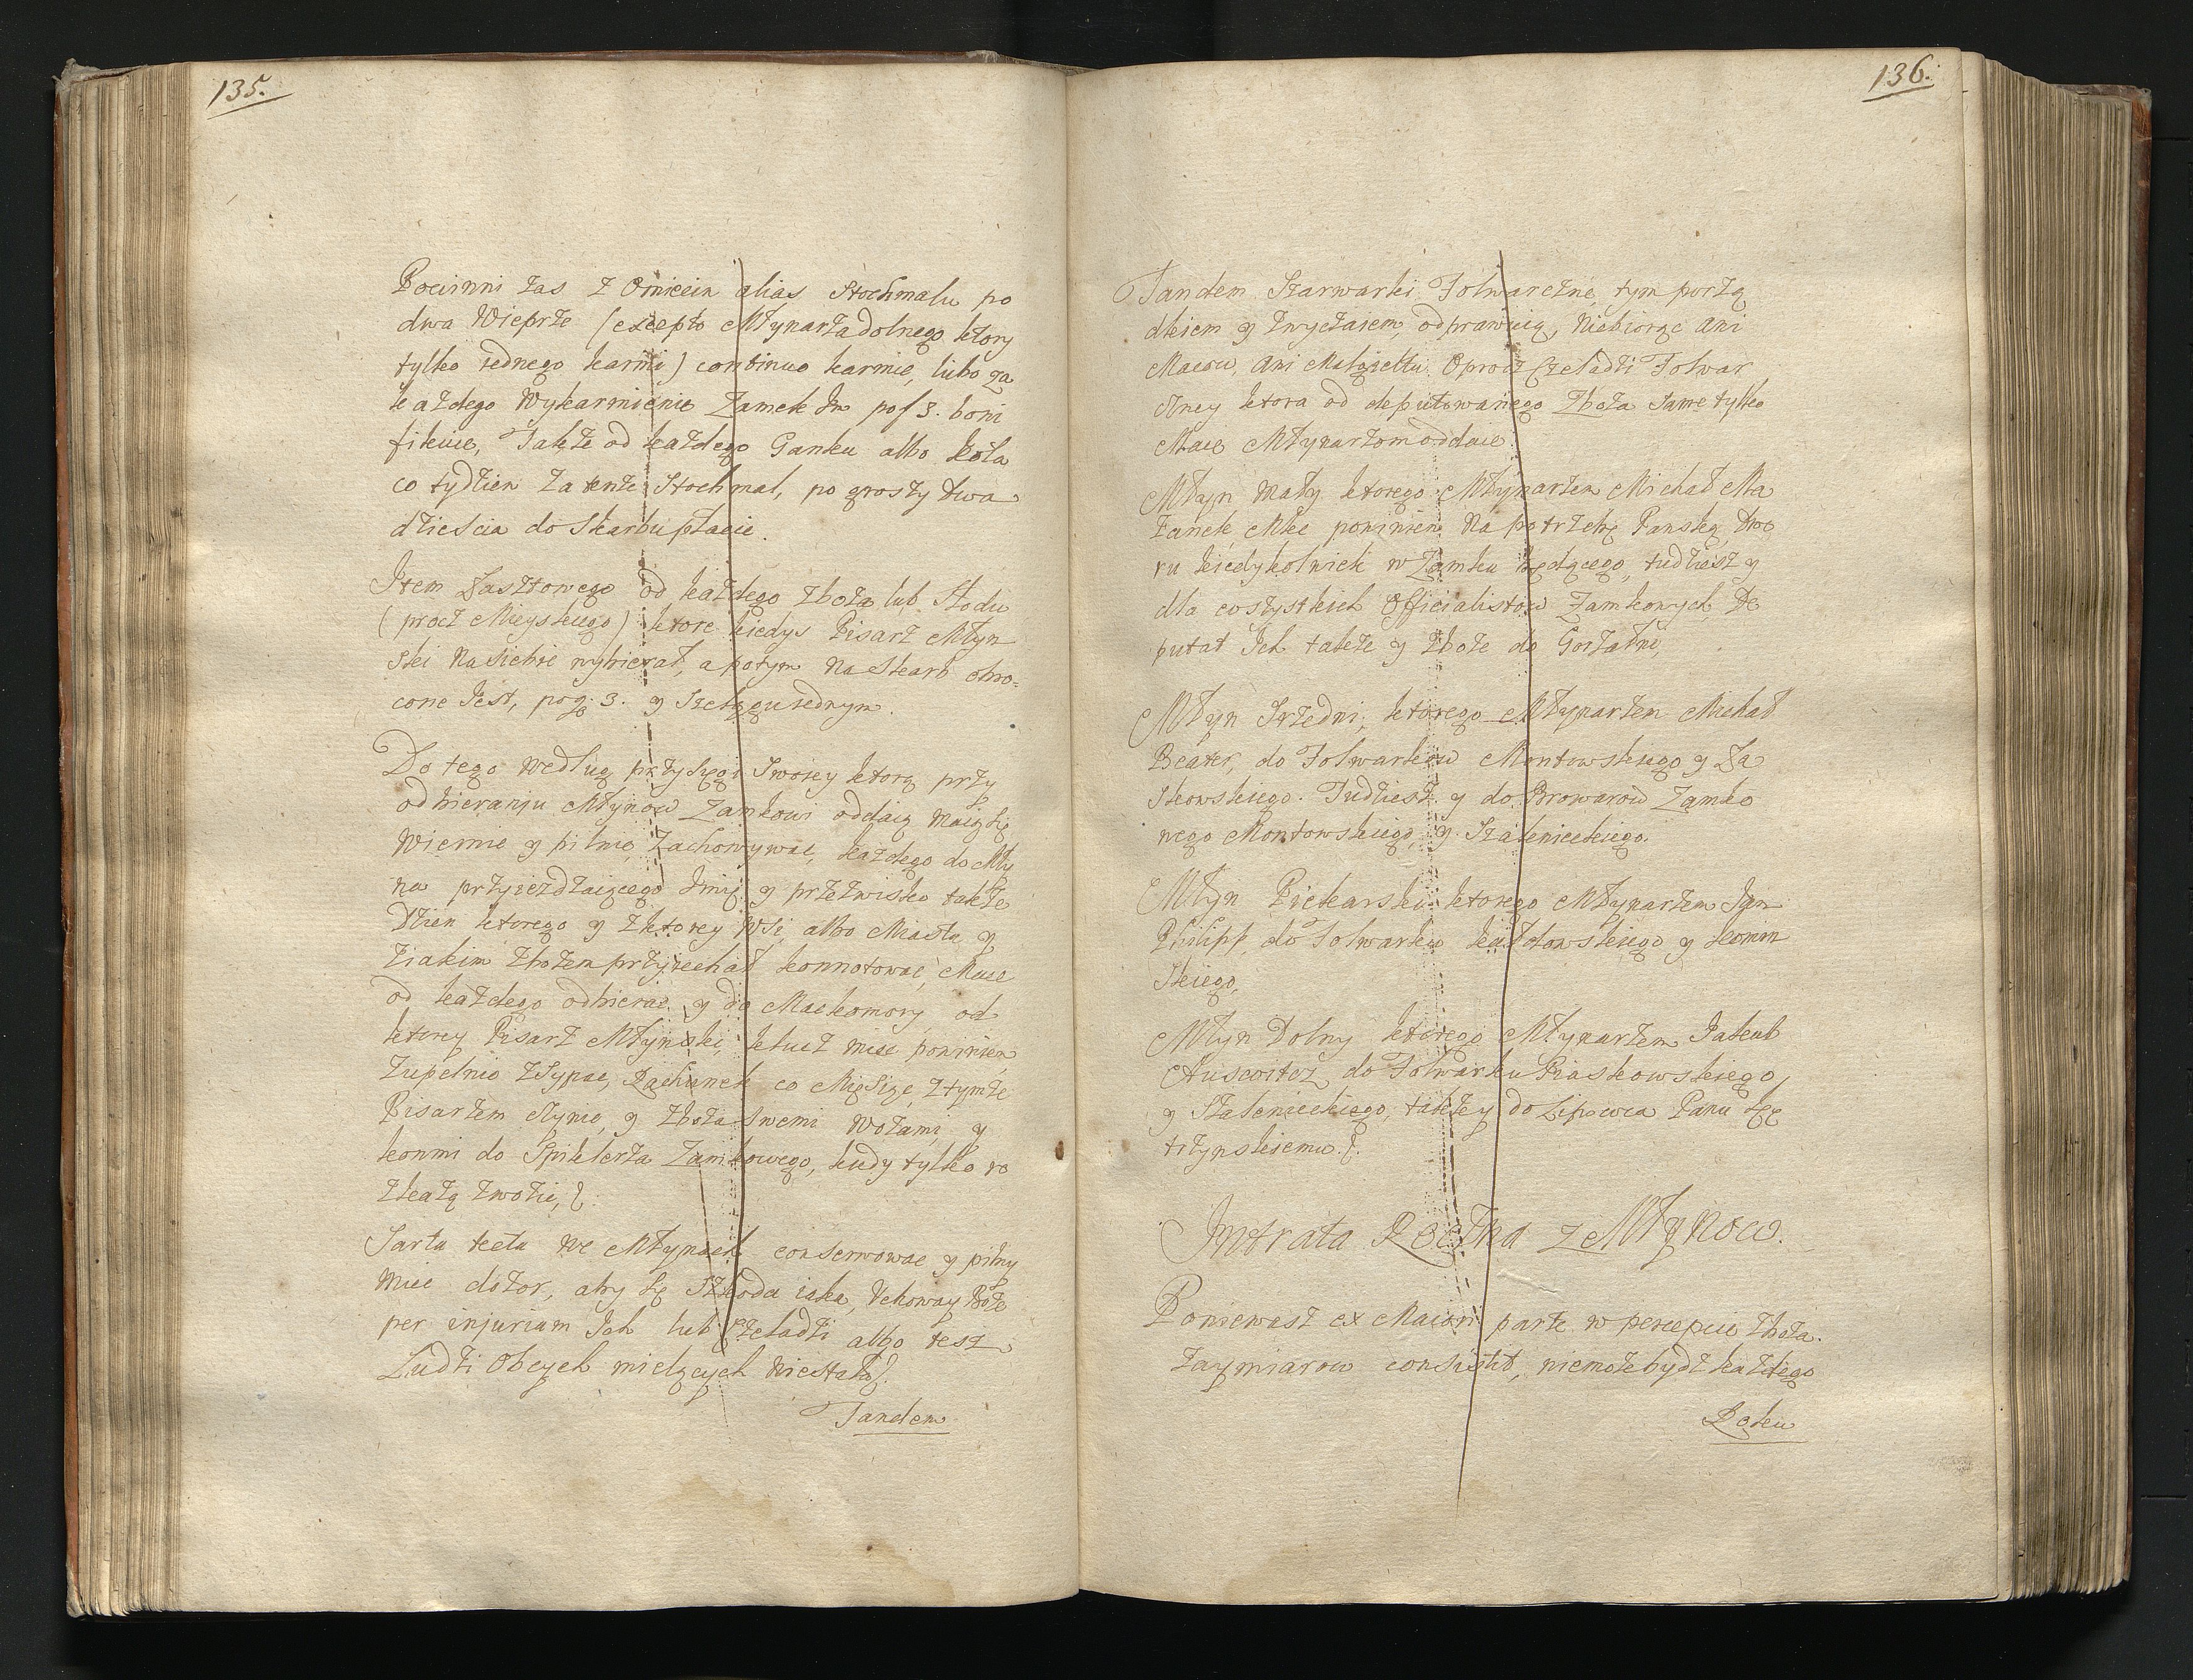 135.
Powinni zas z Omiecin alias Stochmalu po
dwa Wieprze (excepto Młynarza dolnego ktory
tylko jednego karmi) continuo karmic, lubo za
każdego Wykarmienie Zamek Im po f 3. boni
fikuie, Także od każdego Ganku albo Koła
co tydzien za tenże Stochmal, po groszy dwa
dziescia do Skarbu płacic.
Item Łasztowego od każdego zboża lub Słodu
(procz Mieyskiego) ktore kiedys Pisarz Młyn
ski na siebie wybierał, a potym na Skarb obro=
cone jest, po g. 3. y Szelągu jednym.
Do tego według przysięgi swoiey ktorą przy
odbieraniu Młynow Zamkowi oddaią maią się
wiernie y pilnie Zachowywac, każdego do Mły
na przyiezdzaiącego Imię y przezwisko także
Dzien ktorego y z ktorey Wsi albo Miasta y
z iakim zbożem przyiechał konnotowac, Mace
od każdego odbierac y do Mackomory od
ktorey Pisarz Młynski klucz miec powinien
zupełnie zsypac, Rachunek co Miesiąc z tymże
Pisarzem czynic, y zboża swemi wołami y
konmi do Spiklerza Zamkowego, kiedy tylko ro
zkażą zwozic,
Sarta tecta we Młynach conserwowac y pilny
miec dozor, aby się Szkoda iaka, Uchoway Boże
per injuriam Ich lub Czeladzi albo tesz
Ludzi Obcych mielących nie stała.
Tandem
136.
Tandem Szarwarki Folwarczne, tym porzą
dkiem y zwyczaiem odprawuią, niebiorąc ani
Macow, ani Oprocz Czeladzi Folwar
czney ktora od deputowanego Zboża same tylko
Mace Młynarzom oddaie.
Młyn Mały ktorego Młynarzem Michał Ma
żanek, Mlec powinien na potrzebę Panską, Dwo
ru kiedykolwiek w Zamku będącego, tudziesz y
dla wszystkich Officialistow Zamkowych, De
putat Ich także y zboże do Gorzałni,
Młyn Srzedni, ktorego Młynarzem Michał
Beater, do Folwarkow Montowskiego y La
skowskiego. Tudziesz y do Browarow Zamko
wego Montowskiego, y Szalenieckiego.
Młyn Piekarski ktorego Młynarzem Jan
Philipp, do Folwarku każdowskiego y komin
skiego,
Młyn Dolny ktorego Młynarzem Jakub
do Folwarku Piaskowskiego,
y Szalenieckiego, także y do Lipowca Panu
Intrata Roczna z Młynow.
Poniewasz ex Maiori parte w percepcie zboża
zaymiarow consistit, niemoże bydz każdego
Roku